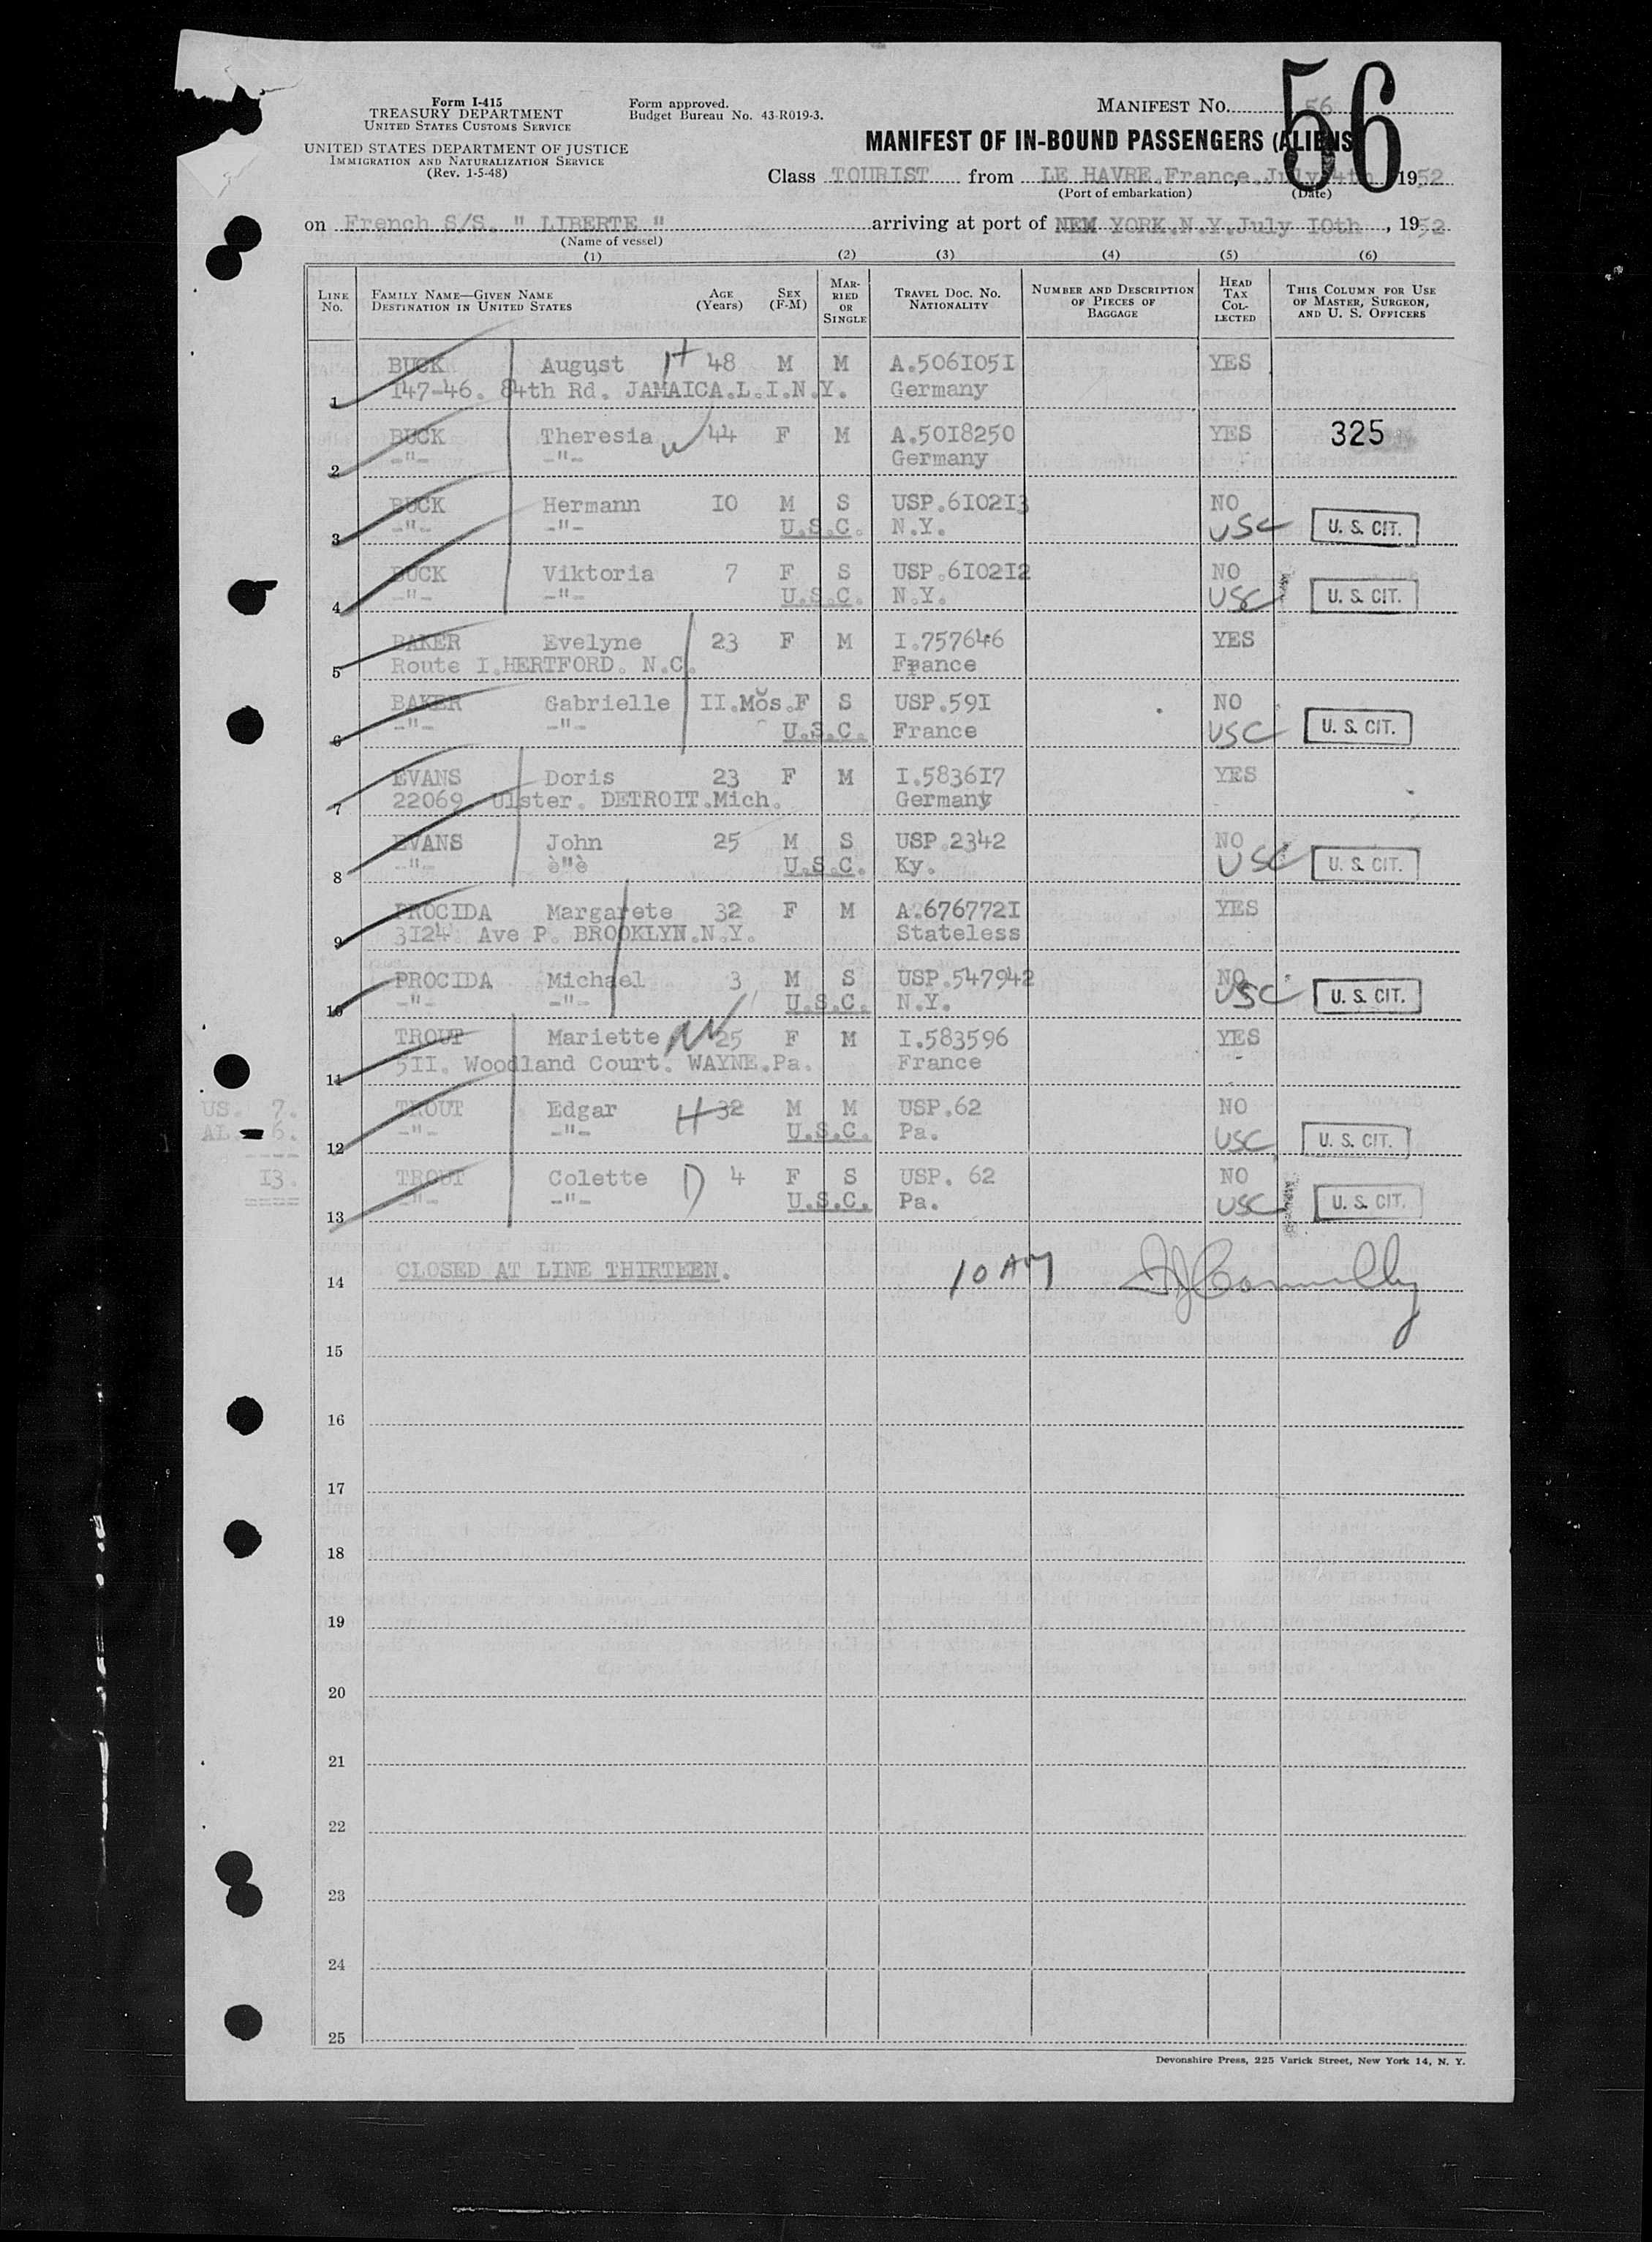 56
Form I-415
TREASURY DEPARTMENT
UNITED STATES CUSTOMS SERVICE
UNITED STATES DEPARTMENT OF JUSTICE
IMMIGRATION AND NATURALIZATION SERVICE
(Rev. 1-5-48)
Form approved.
Budget Bureau No. 43-R019-3.
MANIFEST NO. 56
MANIFEST OF IN-BOUND PASSENGERS (ALIENS)
Class TOURIST from LE HAVRE.France.July 4th 1952
(Port of embarkation) (Date)
on French S/S. " LIBERTE " arriving at port of NEW YORK.N.Y.July I0th , 1952
(Name of vessel)
(1) (2) (3) (4) (5) (6)
LINE No. FAMILY NAME—GIVEN NAME DESTINATION IN UNITED STATES AGE (Years) SEX (F-M) MARRIED OR SINGLE TRAVEL DOC. NO. NATIONALITY NUMBER AND DESCRIPTION OF PIECES OF BAGGAGE HEAD TAX COLLECTED THIS COLUMN FOR USE OF MASTER, SURGEON, AND U. S. OFFICERS
BUCK August H 48 M M A.506I05I YES
1 147-46. 84th Rd. JAMAICA.L.I.N.Y. Germany
BUCK Theresia W 44 F M A.50I8250 YES 325
2 -"- -"- Germany
BUCK Hermann I0 M S USP.6I02I3 NO
3 -"- -"- U.S.C. N.Y. USC U. S. CIT.
BUCK Viktoria 7 F S USP.6I02I2 NO
4 -"- -"- U.S.C. N.Y. USC U. S. CIT.
BAKER Evelyne 23 F M I.757646 YES
5 Route I.HERTFORD. N.C. France
BAKER Gabrielle II.Mos.F S USP.59I NO
6 -"- -"- U.S.C. France USC U. S. CIT.
EVANS Doris 23 F M I.5836I7 YES
7 22069 Ulster. DETROIT.Mich. Germany
EVANS John 25 M S USP.2342 NO
8 -"- è"è U.S.C. Ky. USC U. S. CIT.
PROCIDA Margarete 32 F M A.676772I YES
9 3I24 Ave P. BROOKLYN.N.Y. Stateless
PROCIDA Michael 3 M S USP.547942 NO
10 -"- -"- U.S.C. N.Y. USC U. S. CIT.
TROUT Mariette W 25 F M I.583596 YES
11 5II. Woodland Court. WAYNE.Pa. France
US. 7. TROUT Edgar H 32 M M USP.62 NO
AL 6. 12 -"- -"- U.S.C. Pa. USC U. S. CIT.
----
I3. TROUT Colette D 4 F S USP. 62 NO
==== 13 -"- -"- U.S.C. Pa. USC U. S. CIT.
14 CLOSED AT LINE THIRTEEN. 10 AM Connolly
15
16
17
18
19
20
21
22
23
24
25
Devonshire Press, 225 Varick Street, New York 14, N. Y.